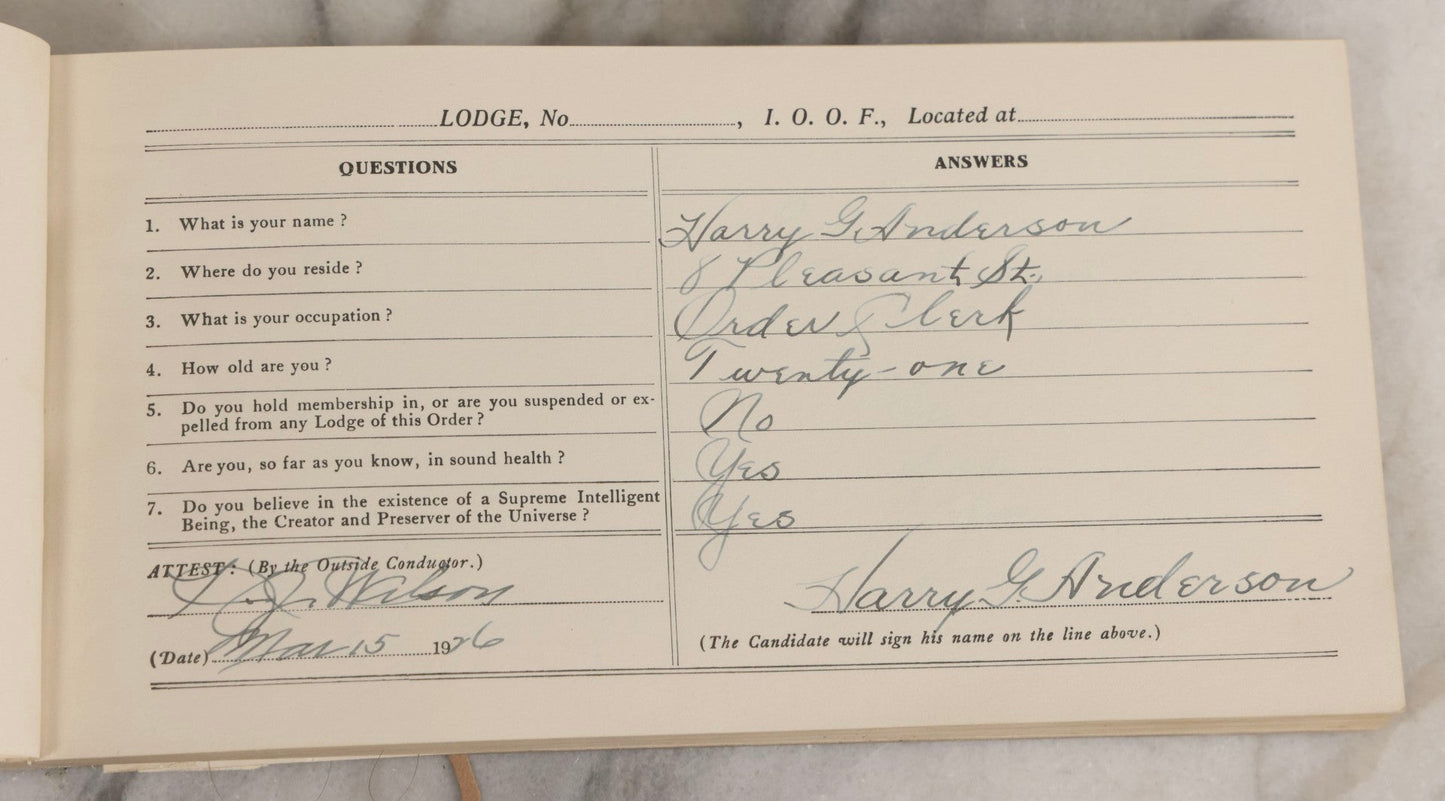 LODGE, No , I. O. O. F., Located at
QUESTIONS ANSWERS
1. What is your name ? Harry G. Anderson
2. Where do you reside ? 8 Pleasant St.
3. What is your occupation ? Order Clerk
4. How old are you ? Twenty-one
5. Do you hold membership in, or are you suspended or ex-
pelled from any Lodge of this Order ? No
6. Are you, so far as you know, in sound health ? Yes
7. Do you believe in the existence of a Supreme Intelligent
Being, the Creator and Preserver of the Universe ? Yes
ATTEST: (By the Outside Conductor.)
Wilson Harry G. Anderson
(The Candidate will sign his name on the line above.)
(Date) Mar 15 1926